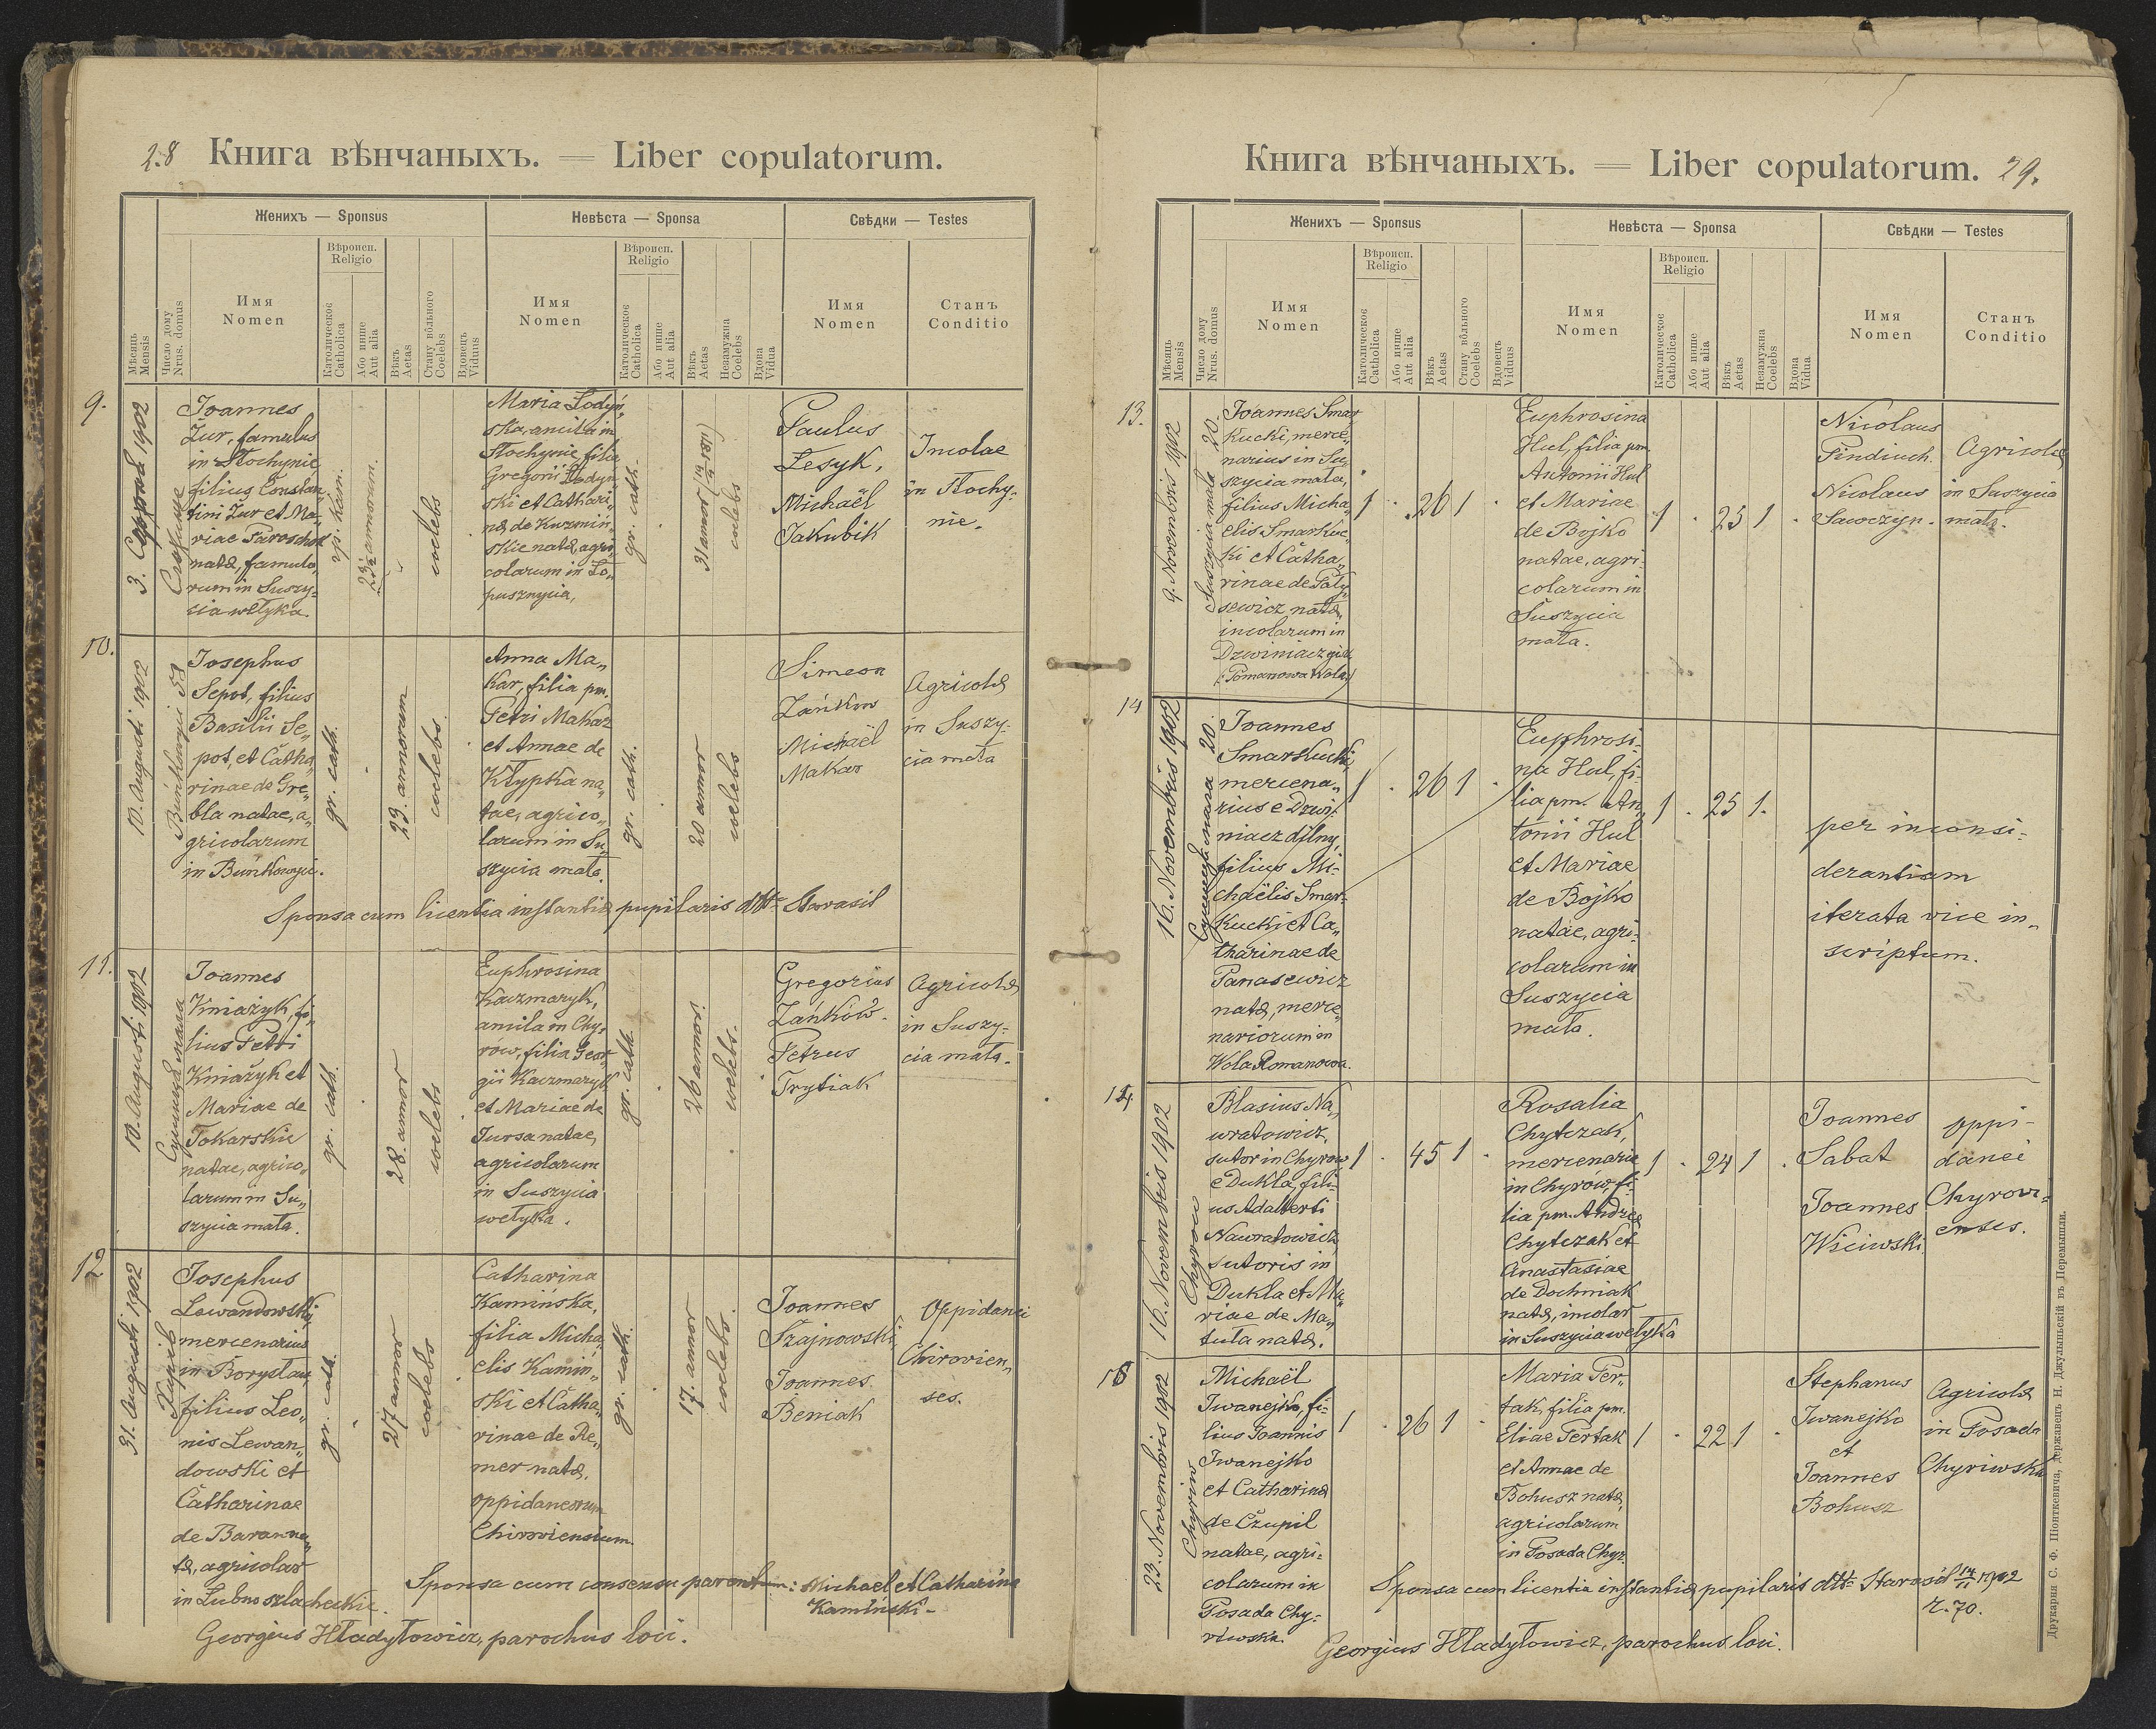 28 Книга вѣнчаныхъ. — Liber copulatorum.
Женихъ — Sponsus
Невѣста — Sponsa
Свѣдки — Testes
Мѣсяць
Mensis
Число дому
Nrus. domus
Имя
Nomen
Вѣроисп.
Religio
Католическое
Catholica
Або инше
Aut alia
Вѣкъ
Aetas
Стану вôльного
Coelebs
Вдовець
Viduus
Имя
Nomen
Вѣроисп.
Religio
Католическое
Catholica
Або инше
Aut alia
Вѣкъ
Aetas
Незамужна
Coelebs
Вдова
Vidua
Имя
Nomen
Станъ
Conditio
9.
1902
Joannes
Zur, famulus
in Stochynie
filius Constan„
tini Zur et Ma„
riae Paroschak
natæ, famulo„
rum in Suszy=
cia wełyka.
23½ annorum.
coelebs
Maria Łodyń„
ska, ancila in
Stochynie, filia
Gregorii Łodyń
ski et Cathari„
næ de Kuzmiń„
skie natæ, agri„
colarum in Ło„
pusznycia,
gr. cath.
31 annor
coelebs
Paulus
Lesyk,
Michaël
Jakubik
Incolae
in Stochy=
nie.
10.
10. Augusti 1902
Búnkowyci 58
Josephus
Sepot, filius
Basilii Se„
pot, et Catha„
rinae de Gre„
bla natae, a„
gricolarum
in Buńkowyci.
gr. cath.
29. annorum
coelebs
Anna Ma„
kar, filia pm.
Petri Makar
et Annae de
Kłypka na„
tae, agrico„
larum in Su„
szycia mała.
gr. cath.
20 annor
coelebs
Simeon
Zańkow
Michaël
Makar
Agricolæ
in Suszy=
cia mała
Sponsa cum licentia instantiæ pupilaris dtto Starasil
11.
10. Augusti 1902
Joannes
Kniażyk, fi„
lius Petri
Kniażyk et
Mariae de
Tokarskie
natae, agrico„
larum in Su„
szycia mała.
gr. cath.
28. annor
coelebs
Euphrosina
Kaczmaryk,
ancila in Chy„
rów, filia Geor„
gii Kaczmaryk
et Mariae de
Jursa natae,
agricolarum
in Suszycia
wełyka.
gr. cath.
26 annor.
coelebs.
Gregorius
Zańków.
Petrus
Trytiak
Agricolæ
in Suszy=
cia mała.
12
31. Augusti 1902
Josephus
Lewandowski,
mercenarius
in Borysław,
filius Leo„
nis Lewan„
dowski et
Catharinae
de Baran na„
tæ, agricolar
in Łubno szlacheckie.
gr. cath.
27 annor
coelebs
Catharina
Kamińska,
filia Micha„
elis Kamiń„
ski et Catha„
rinae de Re„
mer natæ,
oppidaneorum
Chiroviensium.
gr. cath.
17. annor
coelebs.
Joannes
Szajnowski,
Joannes
Beniak
Oppidanei
Chirovien„
ses.
Sponsa cum consensu parentum: Michael et Catharina
Kamiński.
Georgius Hładyłowicz, parochus loci.
Книга вѣнчаныхъ. — Liber copulatorum. 29.
Женихъ — Sponsus
Невѣста — Sponsa
Свѣдки — Testes
Мѣсяць
Mensis
Число дому
Nrus. domus
Имя
Nomen
Вѣроисп.
Religio
Католическое
Catholica
Або инше
Aut alia
Вѣкъ
Aetas
Стану вôльного
Coelebs
Вдовець
Viduus
Имя
Nomen
Вѣроисп.
Religio
Католическое
Catholica
Або инше
Aut alia
Вѣкъ
Aetas
Незамужна
Coelebs
Вдова
Vidua
Имя
Nomen
Станъ
Conditio
13.
9. Novembris 1902
Suszycia mała 20.
Joannes Smar
kucki, merce„
narius in Su„
szycia mała,
filius Micha„
elis Smarkuc„
ki et Catha„
rinae de
sewicz natæ,
incolarum in
1 . 26 1 .
Euphrosina
Hul, filia pm
Antonii Hul
et Mariae
de Bojko
natae, agri=
colarum in
Suszycia
mała.
1 . 25 1 .
Nicolaus
Pindiuch.
Nicolaus
Sawczyn.
Agricolæ
in Suszycia
mała.
14
16. Novembris 1902
20.
Joannes
Smarkucki,
mercena„
rius e Dzwi„
niacz dilny,
filius Mi=
chaëlis Smar„
kucki et Ca„
tharinae de
Panasewicz
natæ, merce„
nariorum in
Wola Romanowa.
1 . 26 1 .
Euphrosi=
na Hul, fi=
lia pm. An„
tonii Hul
et Mariae
de Bojko
natae, agri=
colarum in
Suszycia
mała.
1 . 25 1.
per inconsi=
derantiam
iterata vice in„
scriptum.
16. Novembris 1902
Chyrow
Blasius Na„
wratowicz,
sutor in Chyrow
e Dukla, fili=
us Adalberti
Nawratowicz,
sutoris in
Dukla et Ma„
riae de Ma„
tuła natæ.
1 . 45 1 .
Rosalia
Chytczak,
mercenaria
in Chyrow, fi=
lia pm. Andreæ
Chytczak et
Anastasiae
de Dochniak
natæ, incolar
in Suszycia wełyka
1 . 24 1 .
Joannes
Sabat
Joannes
Wiciwski
oppi=
danei
Chyrovi=
enses.
23. Novembris 1902
Chyriw
Michaël
Iwanejko, fi=
lius Joannis
Iwanejko
et Catharinæ
de Czupil
natae, agri=
colarum in
Posada Chy=
riwska.
1 . 26 1 .
Maria Per„
tak, filia pm.
Eliae Pertak
et Annae de
Bohusz natæ,
agricolarum
in Posada Chyr.
1 . 22 1 .
Stephanus
Iwanejko
et
Joannes
Bohusz
Agricolæ
in Posada
Chyriwska
Sponsa cum licentia instantiæ pupilaris dtto Starasól 14/11 1902
r. 70.
Georgius Hładyłowicz, parochus loci.
Друкарня С. Ф. Піонткевича, державець Н. Джульньскій въ Перемышли.